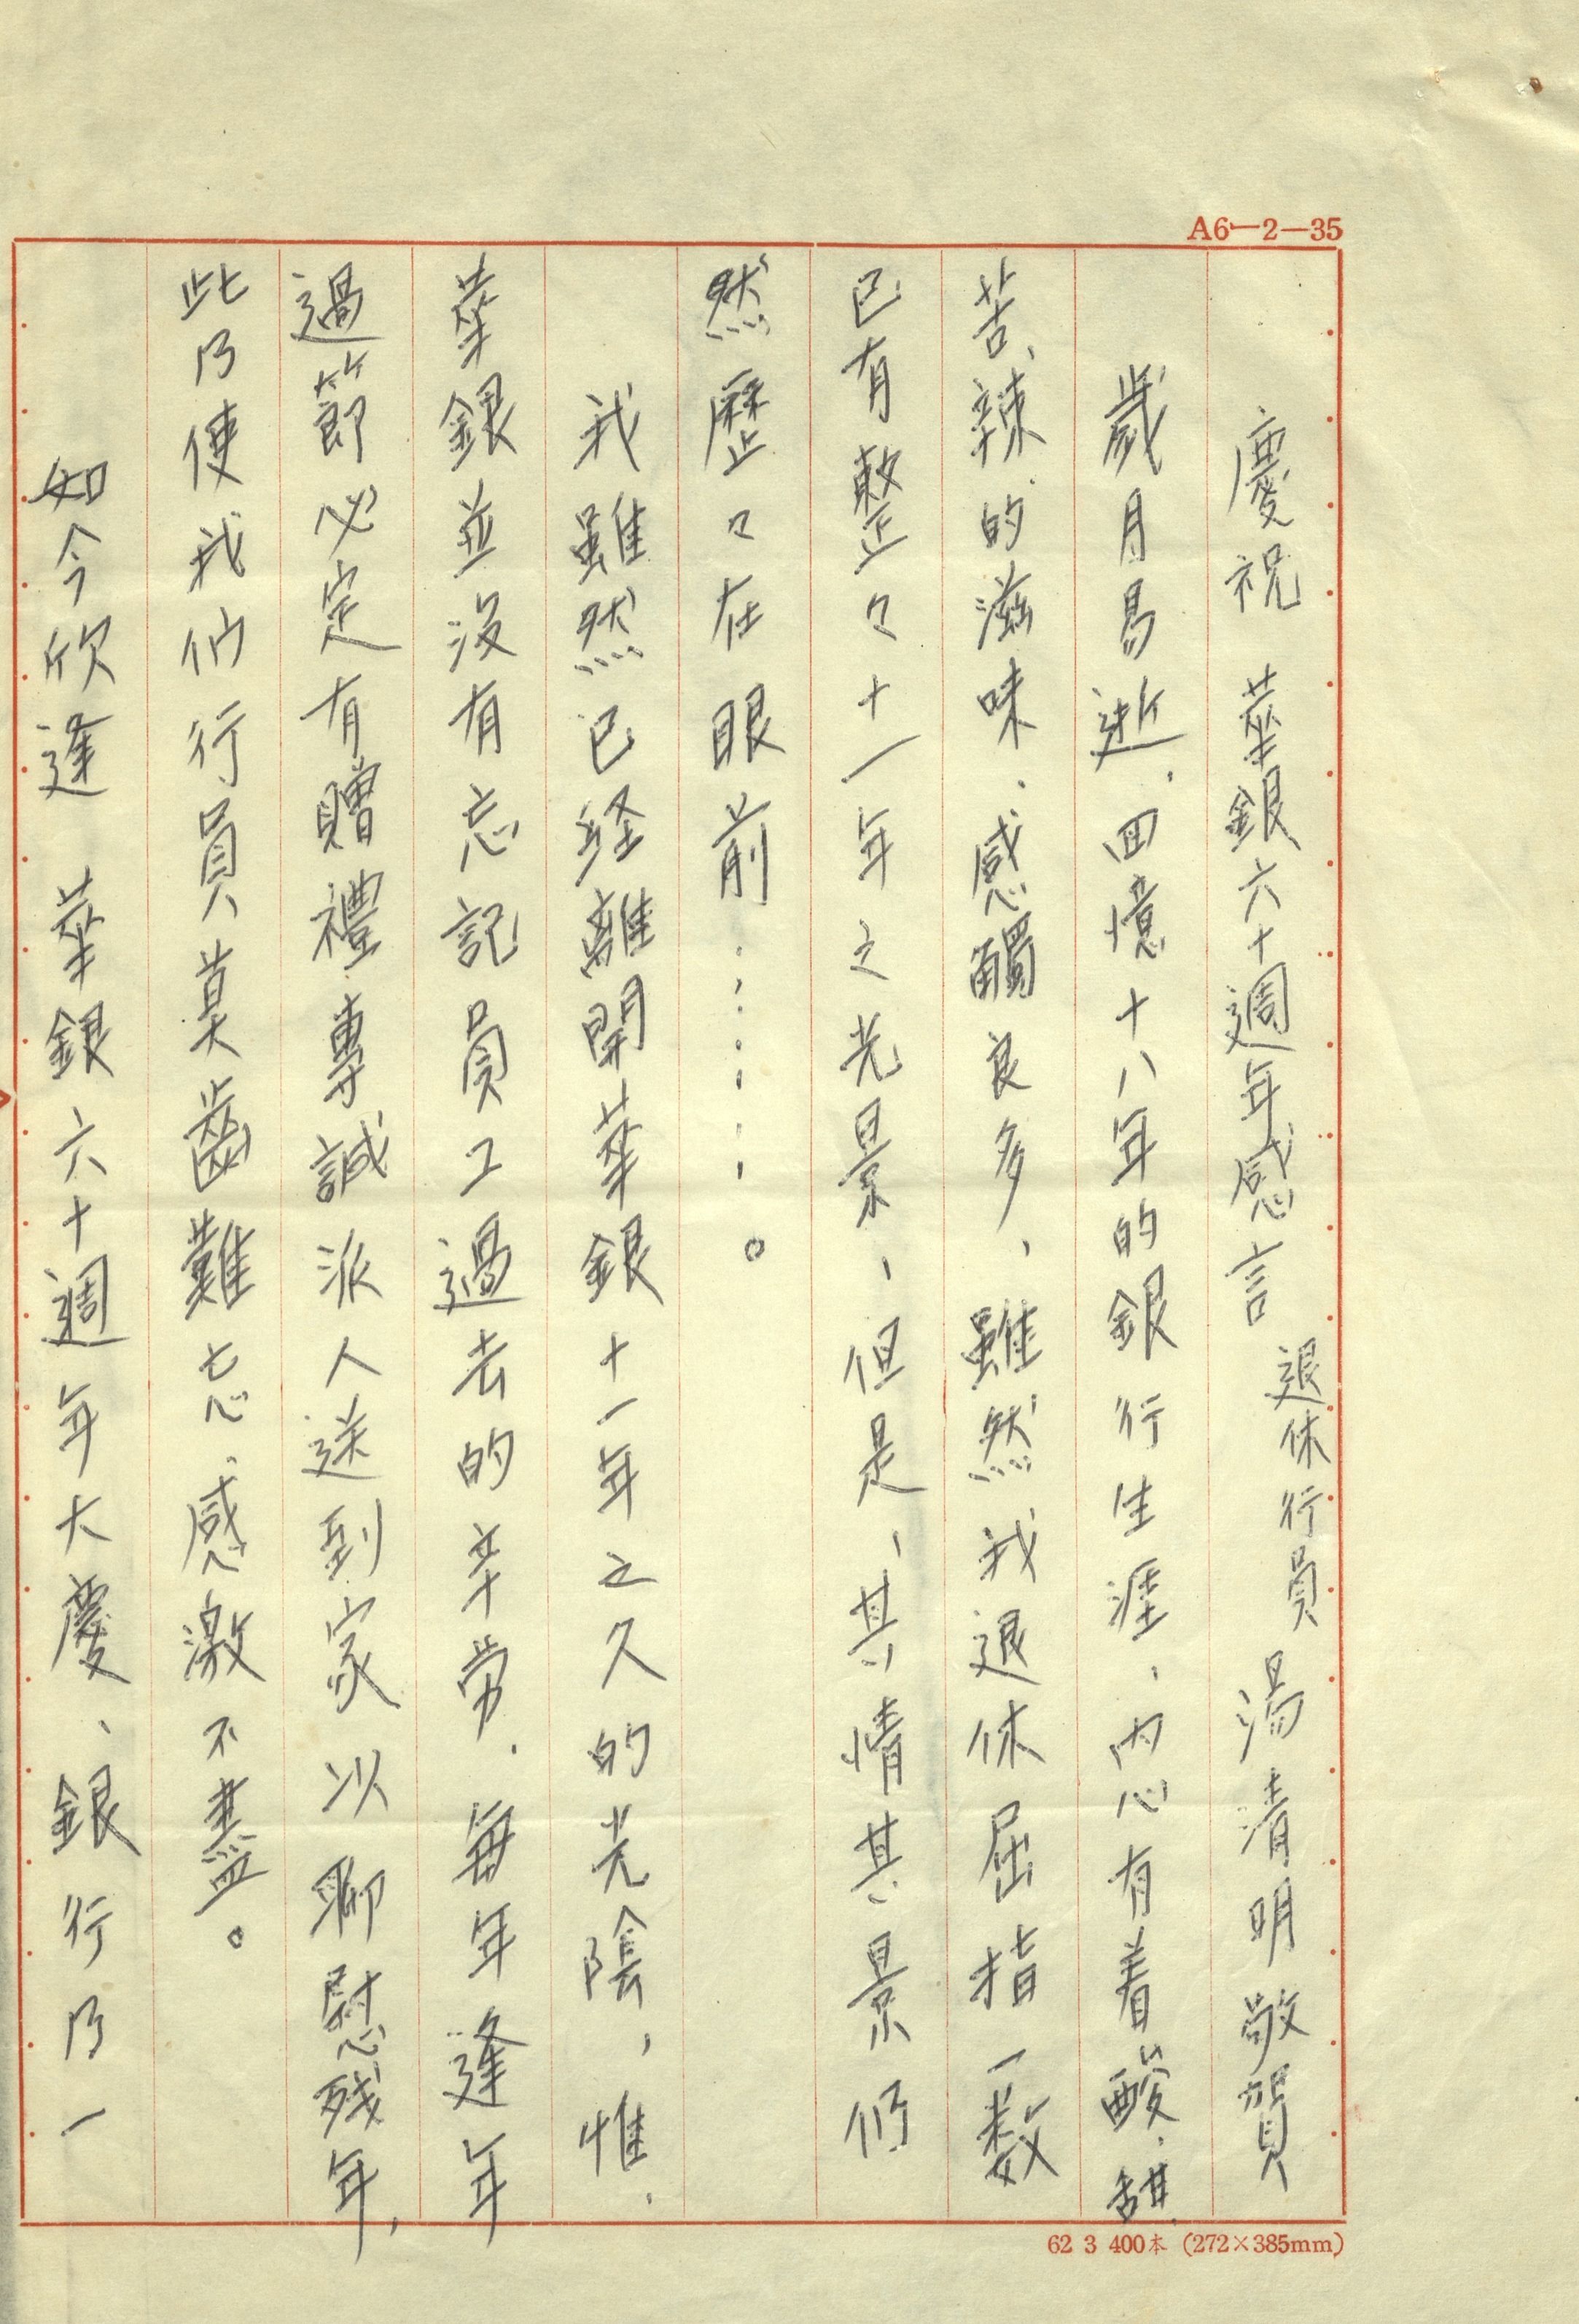 A6—2—35
慶祝　華銀六十週年感言　退休行員　湯清明敬賀
歲月易逝、回憶十八年的銀行生涯、內心有着酸、甜、
苦、辣的滋味、感觸良多、雖然我退休屈指一数
已有整々十一年之光景、但是、其情其景仍
然歷々在眼前………。
我雖然已経離開華銀十一年之久的光陰，惟、
華銀並沒有忘記員工過去的辛劳、每年逢年
過節必定有贈禮、專誠派人送到家以聊慰残年，
此乃使我们行員莫齒難忘、感激不盡。
如今欣逢　華銀六十週年大慶、銀行乃一
62 3 400本 (272×385mm)